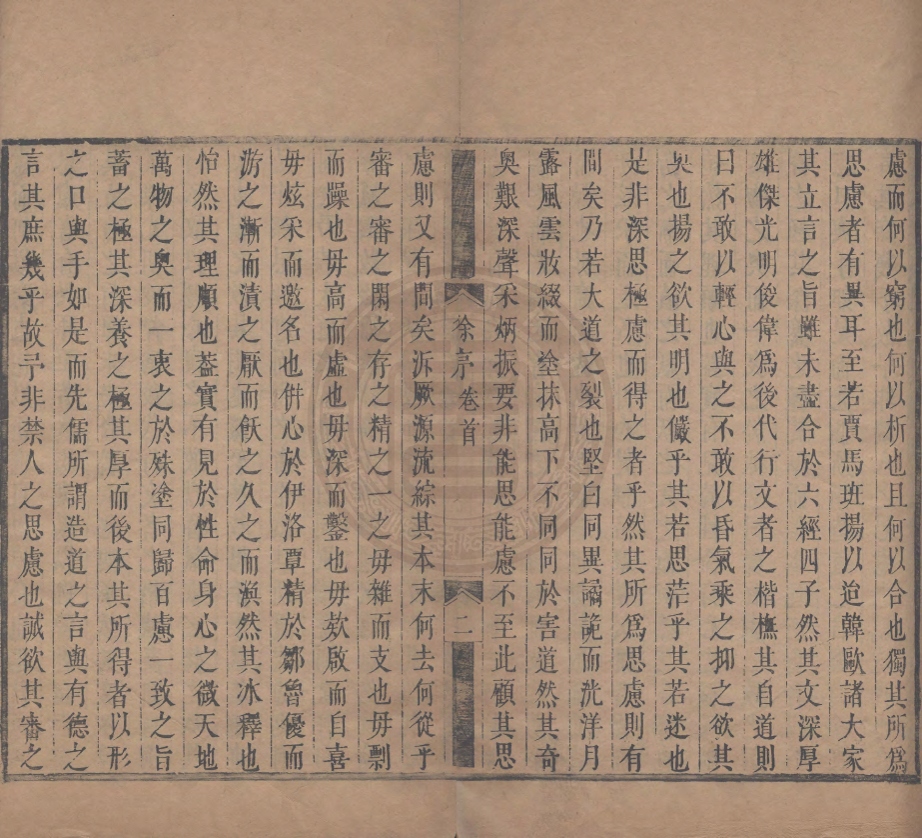 慮而何以窮也何以析也且何以合也獨其所爲
思慮者有異耳至若賈馬班揚以迨韓歐諸大家
其立言之旨雖未盡合於六經四子然其文深厚
雄傑光明俊偉爲後代行文者之楷橅其自道則
曰不敢以輕心與之不敢以昏氣乘之抑之欲其
奧也揚之欲其明也儼乎其若思茫乎其若迷也
是非深思極慮而得之者乎然其所爲思慮則有
間矣乃若大道之裂也堅白同異譎詭而洸洋月
露風雲妝綴而塗抹高下不同同於害道然其奇
奧艱深聲采炳振要非能思能慮不至此顧其思
徐序 卷首 二
慮則又有間矣泝厥源流綜其本末何去何從乎
審之審之閑之存之精之一之毋雜而支也毋剽
而躁也毋高而虛也毋深而鑿也毋欸啟而自喜
毋炫采而邀名也併心於伊洛覃精於鄒魯優而
游之漸而漬之厭而飫之久之而渙然其冰釋也
怡然其理順也葢實有見於性命身心之微天地
萬物之奧而一衷之於殊塗同歸百慮一致之旨
蓄之極其深養之極其厚而後本其所得者以形
之口與手如是而先儒所謂造道之言與有德之
言其庶幾乎故予非禁人之思慮也誠欲其審之